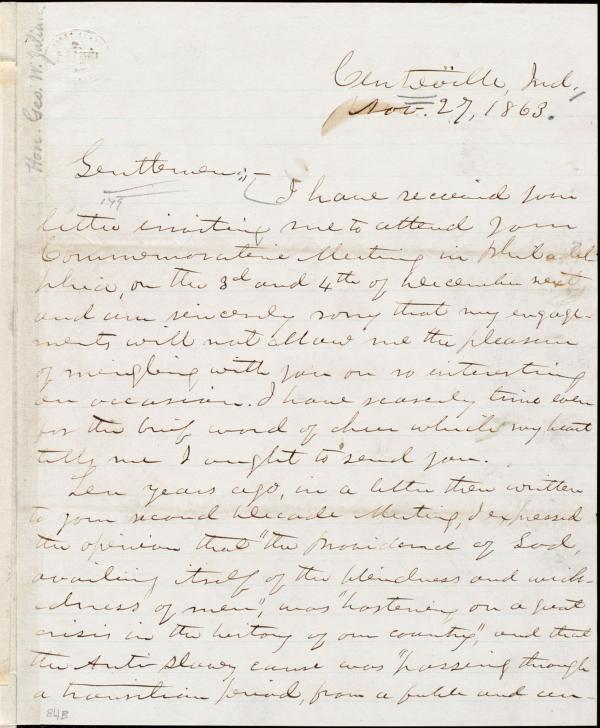 Hon. Geo. W. Julian.
Centreville, Ind.,
Nov. 27, 1863.
Gentlemen:—
179
I have received your
letter inviting me to attend your
Commemorative Meeting in Philadel-
phia, on the 3d and 4th of December next,
and am sincerely sorry that my engage-
ments will not allow me the pleasure
of mingling with you on so interesting
an occasion. I have scarcely time even
for the brief word of cheer which my heart
tells me I ought to send you.
Ten years ago, in a letter then written
to your second Decade Meeting, I expressed
the opinion that "the Providence of God,
availing itself of the blindness and wick-
edness of men", was "hastening on a great
crisis in the history of our country", and that
the Anti Slavery cause was "passing through
a transition period, from a feeble and un-
84B